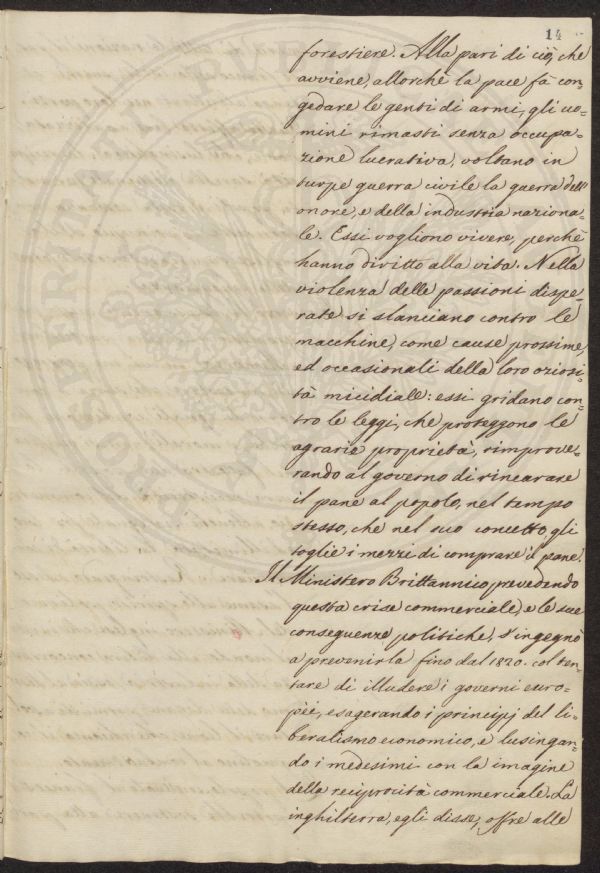 14
forestiere. Alla pari di ciò, che
avviene, allorchè la pace fà con=
gedare le genti di armi, gli uo=
mini rimasti senza occupa=
zione lucrativa, voltano in
turpe guerra civile la guerra dell'
onore, e della industria naziona=
le. Essi vogliono vivere, perchè
hanno diritto alla vita. Nella
violenza delle passioni dispe=
rate si slanciano contro le
macchine, come cause prossime,
ed occasionali della loro oziosi=
tà micidiale: essi gridano con=
tro le leggi, che proteggono le
agrarie proprietà, rimprove=
rando al governo di rincarare
il pane al popolo, nel tempo
stesso, che nel suo concetto, gli
toglie i mezzi di comprare il pane.
Il Ministero Brittannico, prevedendo
questa crise commerciale, e le sue
conseguenze politiche, s'ingegnò
a prevenirla fino dal 1820. col ten=
tare di illudere i governi euro=
pèi, esagerando i principj del li=
beralismo economico, e lusingan=
do i medesimi con la imagine
della reciprocità commerciale. La
inghilterra, egli disse, offre alle
PROSPERITA PUB